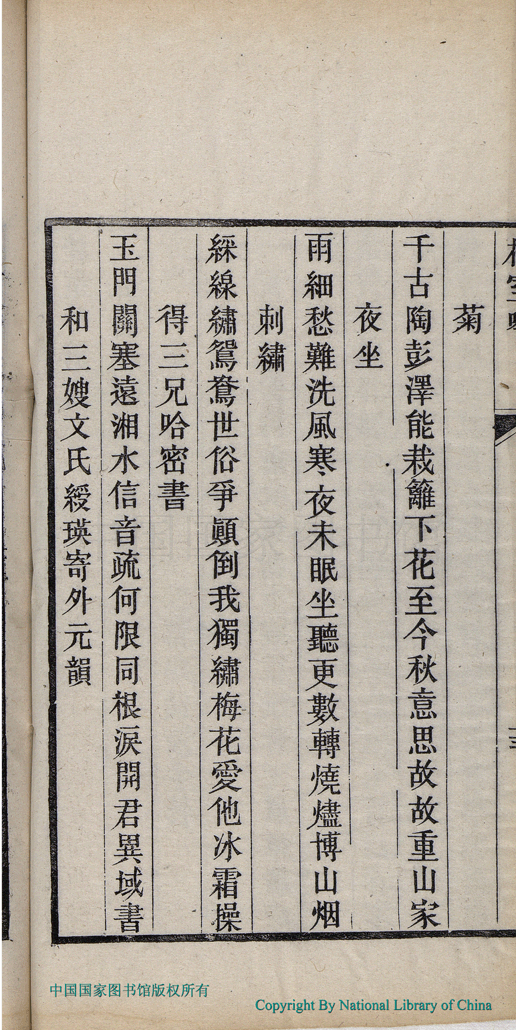 菊
千古陶彭澤能栽籬下花至今秋意思故故重山家
夜坐
雨細愁難洗風寒夜未眠坐聽更數轉燒燼博山烟
刺繡
綵線繡鴛鴦世俗爭顚倒我獨繡梅花愛他冰霜操
得三兄哈密書
玉門關塞遠湘水信音疏何限同根淚開君異域書
和三嫂文氏綬瑛寄外元韻
中国国家图书馆版权所有
Copyright By National Library of China